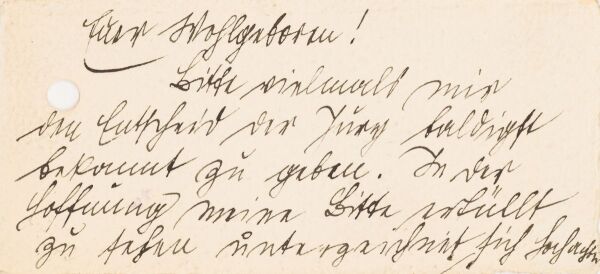 Euer Wohlgeboren!
Bitte vielmals mir
den Entscheid der Jury baldigst
bekannt zu geben. In der
Hoffnung meine Bitte erfüllt
zu sehen unterzeichnet sich